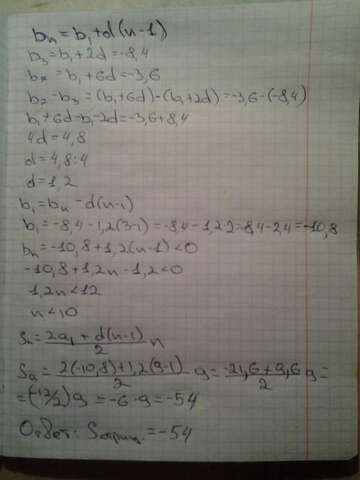 bn = b1 + d(n-1)
b3 = b1 + 2d = -8,4
b7 = b1 + 6d = -3,6
b7 - b3 = (b1 + 6d) - (b1 + 2d) = -3,6 - (-8,4)
b1 + 6d - b1 - 2d = -3,6 + 8,4
4d = 4,8
d = 4,8:4
d = 1,2
b1 = bn - d(n-1)
b1 = -8,4 - 1,2(3-1) = -8,4 - 1,2·2 = -8,4 - 2,4 = -10,8
bn = -10,8 + 1,2(n-1) < 0
-10,8 + 1,2n - 1,2 < 0
1,2n < 12
n < 10
Sn = 2a1 + d(n-1) / 2 n
S9 = 2(-10,8) + 1,2(9-1) / 2 · 9 = -21,6 + 9,6 / 2 9 =
= (-12/2)9 = -6·9 = -54
Ответ: Sотриц. = -54